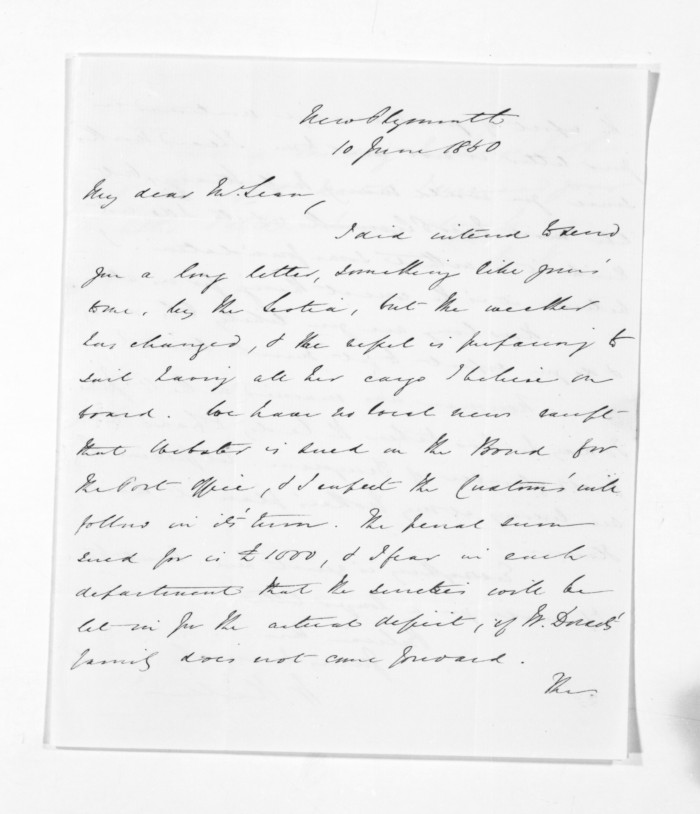 New Plymouth
10 June 1850
My dear McLean,
I did intend to send
you a long letter, something like yours
to me, by the Scotia, but the weather
has changed, & the vessel is preparing to
sail having all her cargo I believe on
board. We have no local news except
that Webster is sued on the Bond for
the Post Office, & I expect the Customs' will
follow in its' turn. The penal sum
sued for is £1000, & I fear in each
department that the sureties will be
let in for the actual deficit, if W. Dorset's
family does not come forward.
The